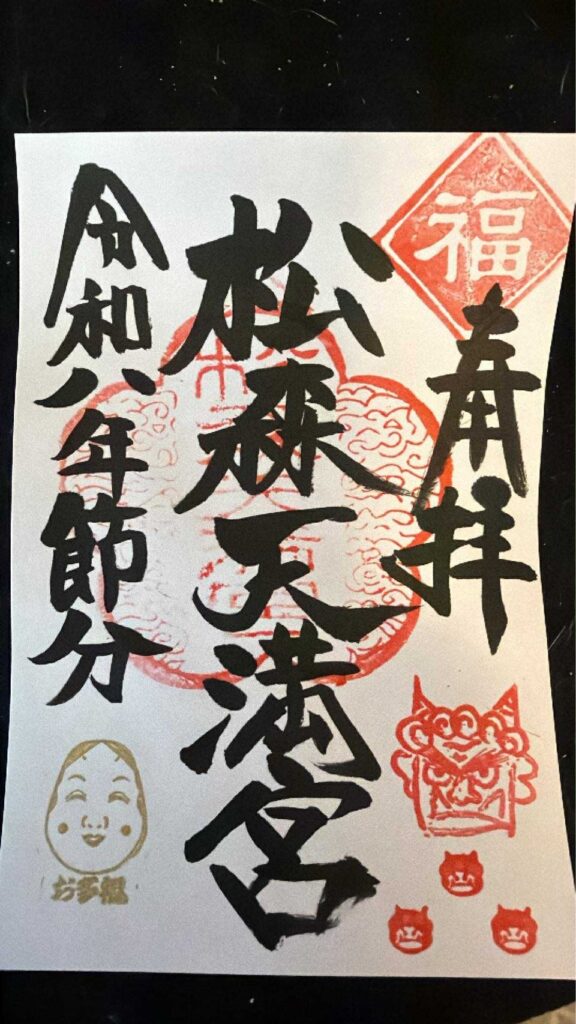 福
奉拝
松森天満宮
令和八年節分
お多福